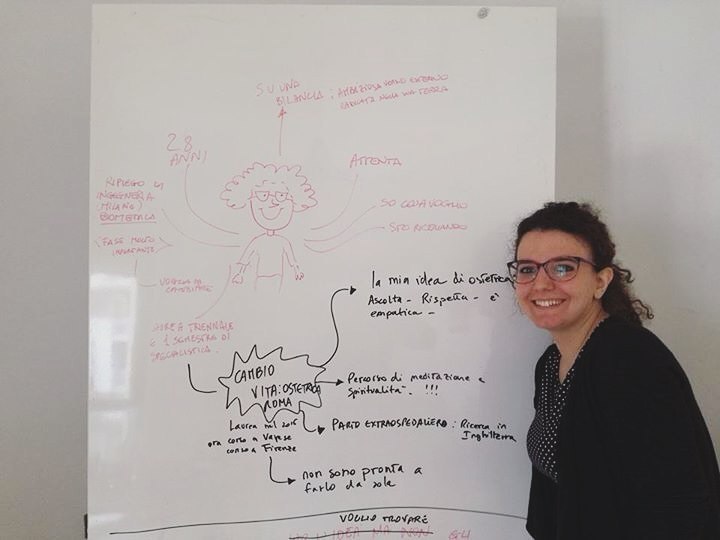 SU UNA
BILANCIA : AMBIZIOSA VERSO ESTERNO
NELLA MIA TERRA
28
ANNI
ATTENTA
RIPIEGO IN
INGEGNERIA
(MILANO)
BIOMEDICA
(FASE MOLTO
IMPORTANTE)
SO COSA VOGLIO
STO RICERCANDO
VOGLIA DI
CAMBIARE
LAUREA TRIENNALE
E 1 SEMESTRE DI
SPECIALISTICA.
la mia idea di ostetrica:
Ascolta - Rispetta - è
empatica -
CAMBIO
VITA: OSTETRICA
ROMA
Percorso di meditazione e
spiritualità. !!!
Laurea nel 2015
ora corso a Varese
corso a Firenze
PARTO EXTRAOSPEDALIERO : Ricerca in
Inghilterra
non sono pronta a
farlo da sola
VOGLIO TROVARE
IDEA MA NON